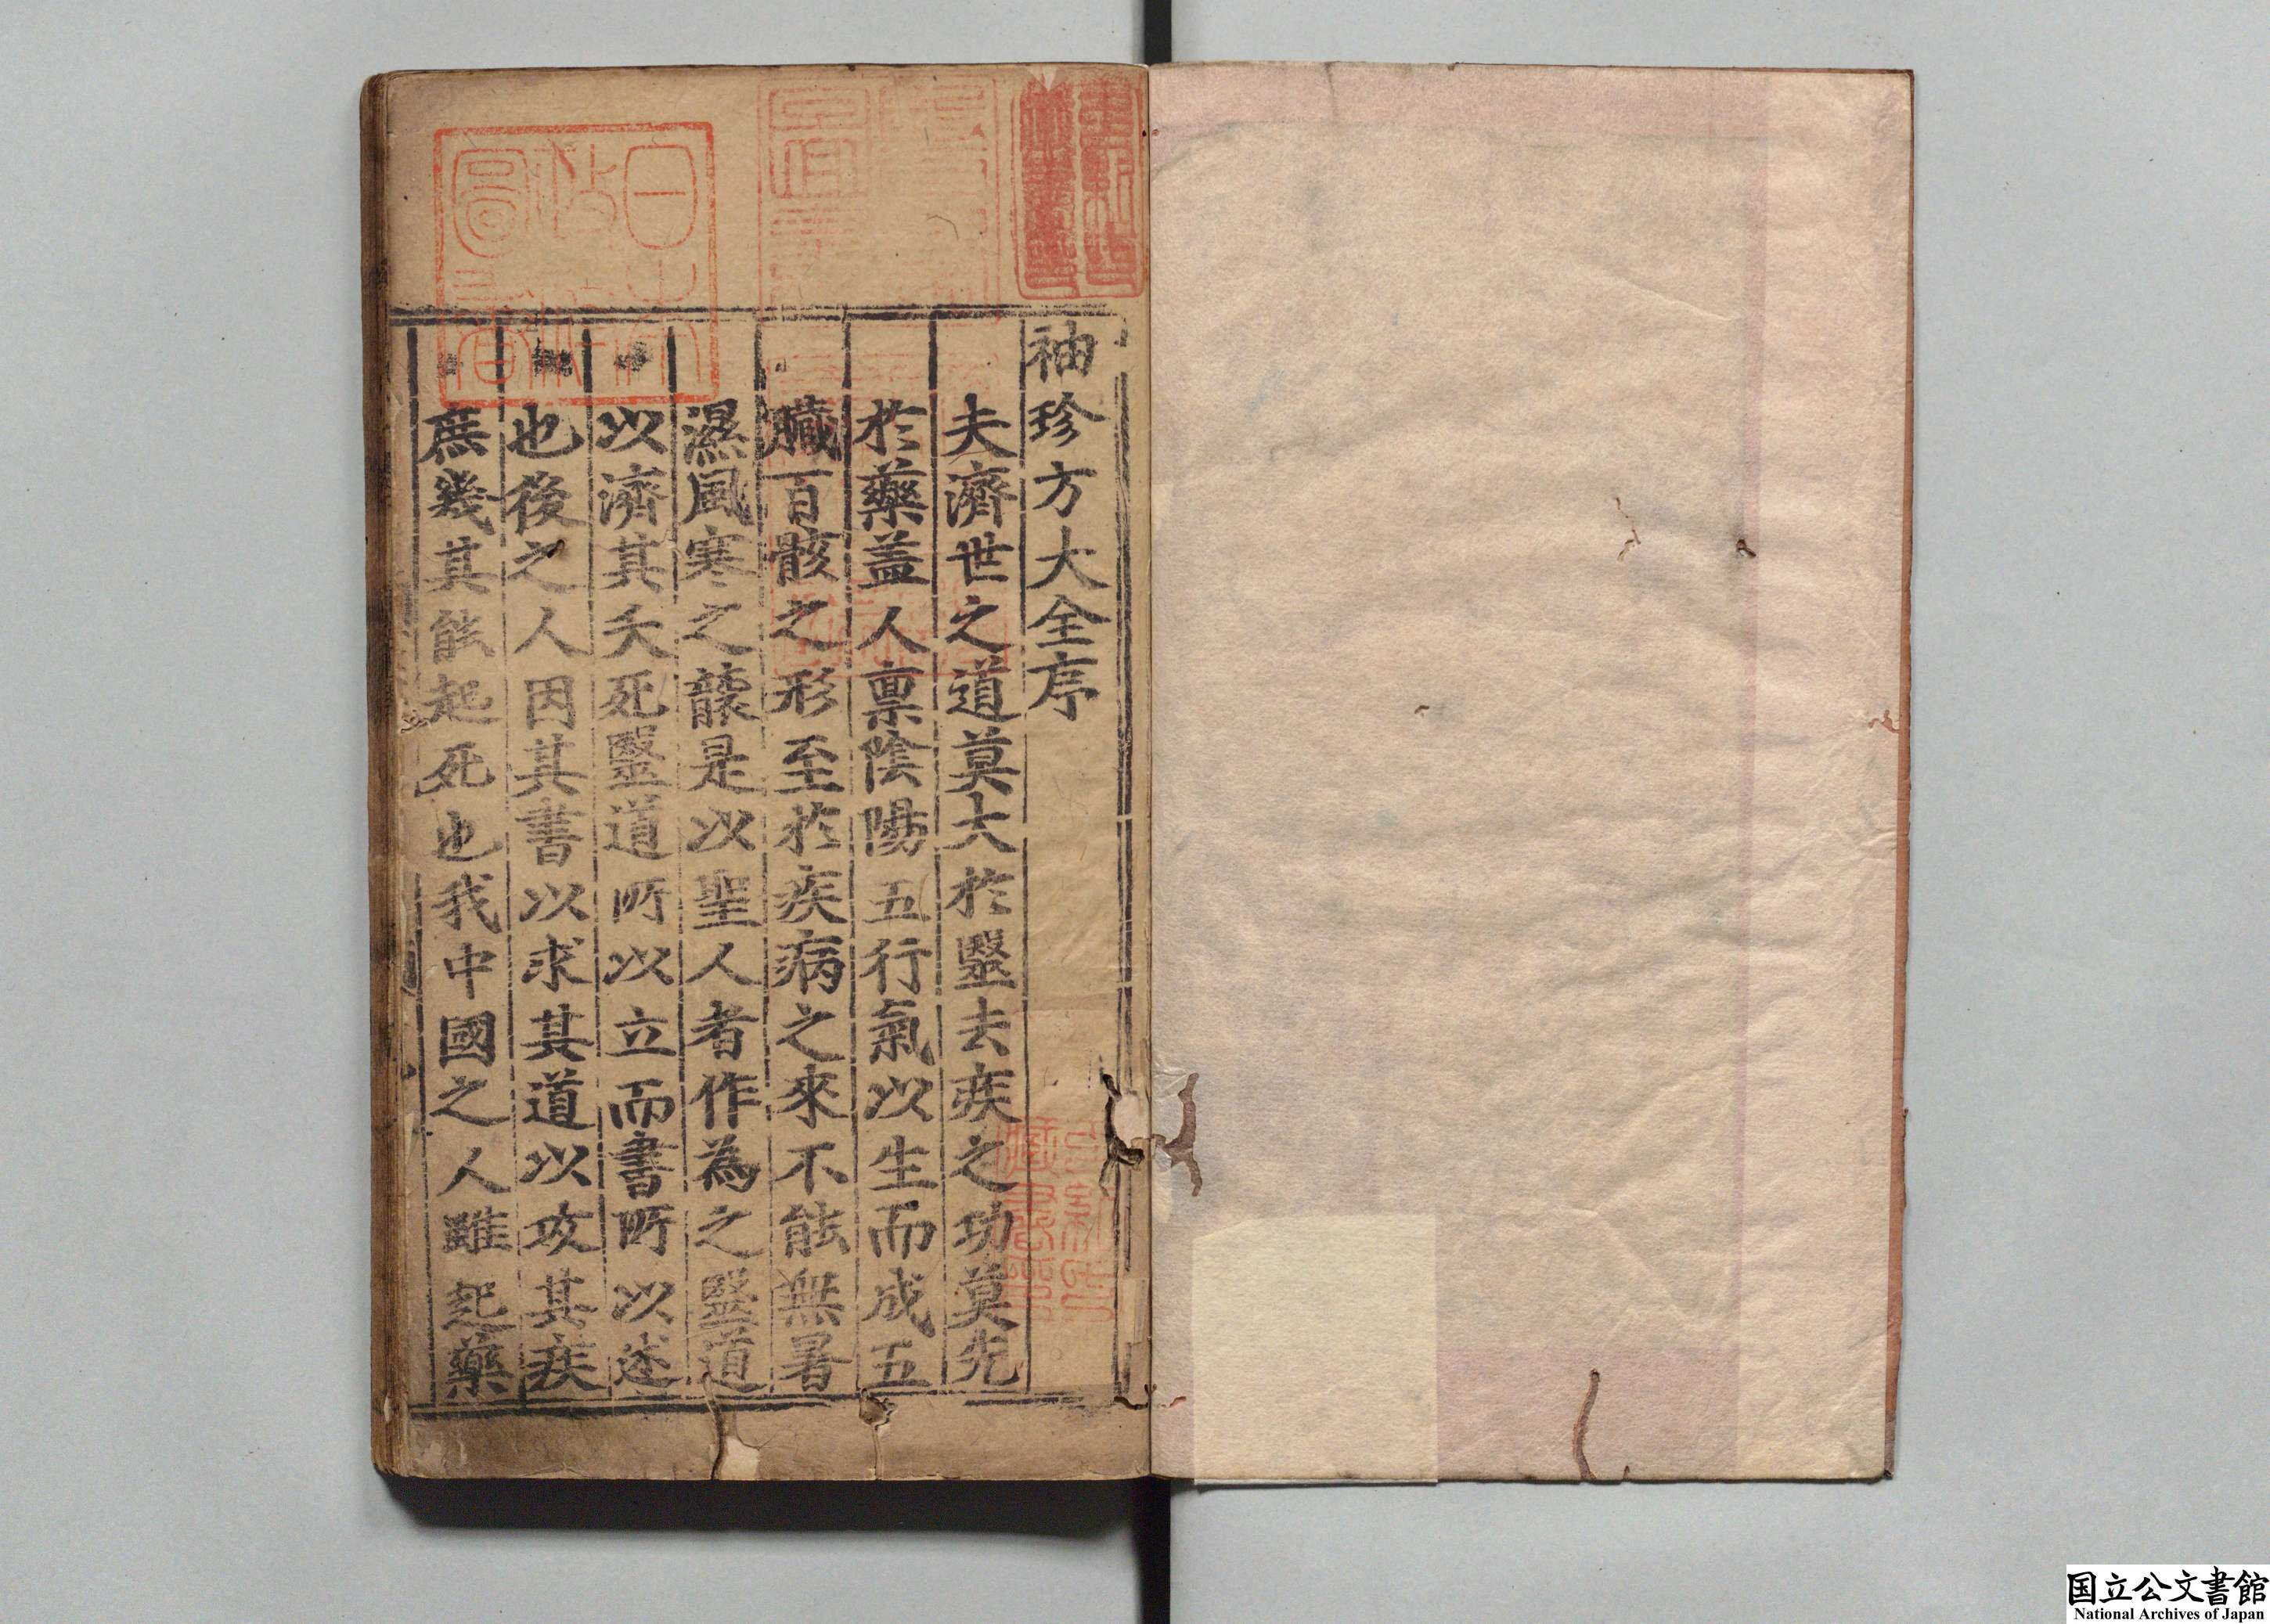 袖珍方大全序
夫濟世之道莫大於醫去疾之功莫先
於藥盖人禀陰陽五行氣以生而成五
臟百骸之形至於疾病之來不能無暑
濕風寒之襲是以聖人者作為之醫道
以濟其夭死醫道所以立而書所以述
也後之人因其書以求其道以攻其疾
庶幾其能起死也我中國之人雖起藥
国立公文書館
National Archives of Japan